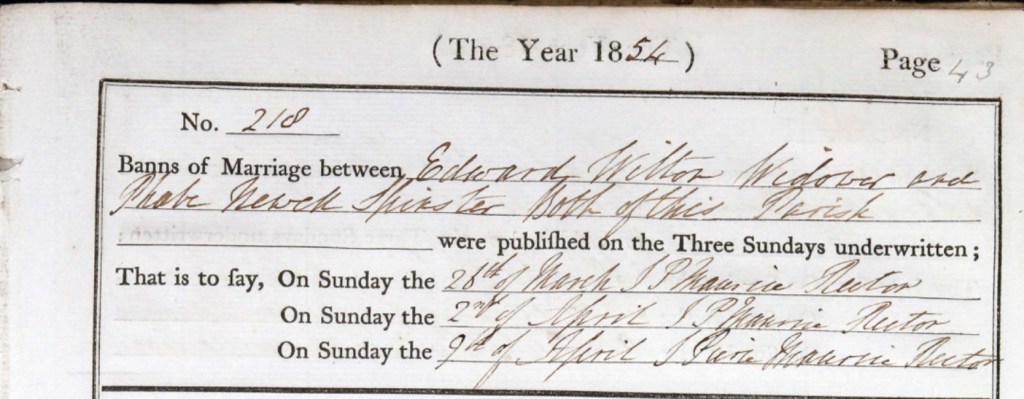 (The Year 1854)
Page 43
No. 218
Banns of Marriage between Edward Wilton Widower and
Phabe Newell Spinster Both of this Parish
were publiſhed on the Three Sundays underwritten;
That is to ſay, On Sunday the 26th of March J P Maurice Rector
On Sunday the 2nd of April J P Maurice Rector
On Sunday the 9th of April J Pierce Maurice Rector